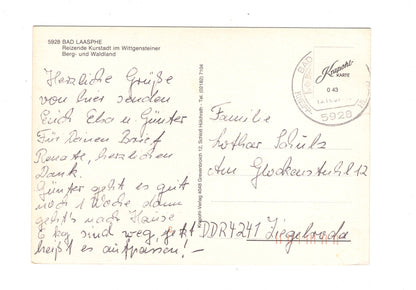 5928 BAD LAASPHE
Reizende Kurstadt im Wittgensteiner
Berg- und Waldland
Herzliche Grüße
von hier senden
Euch Elsa u. Günter
Für Deinen Brief
Renate, herzlichen
Dank.
Günter geht es gut
noch 1 Woche dann
geht's nach Hause
6 kg sind weg, jetzt
heißt es aufpassen! –
Krapohl-Verlag 4048 Grevenbroich 12, Schloß Hülchrath - Tel. (02182) 7104
Krapohl-
KARTE
0 43
BAD
5928
Familie
Lothar Schulz
Am Glockenstuhl 12
DDR 4241 Ziegelroda